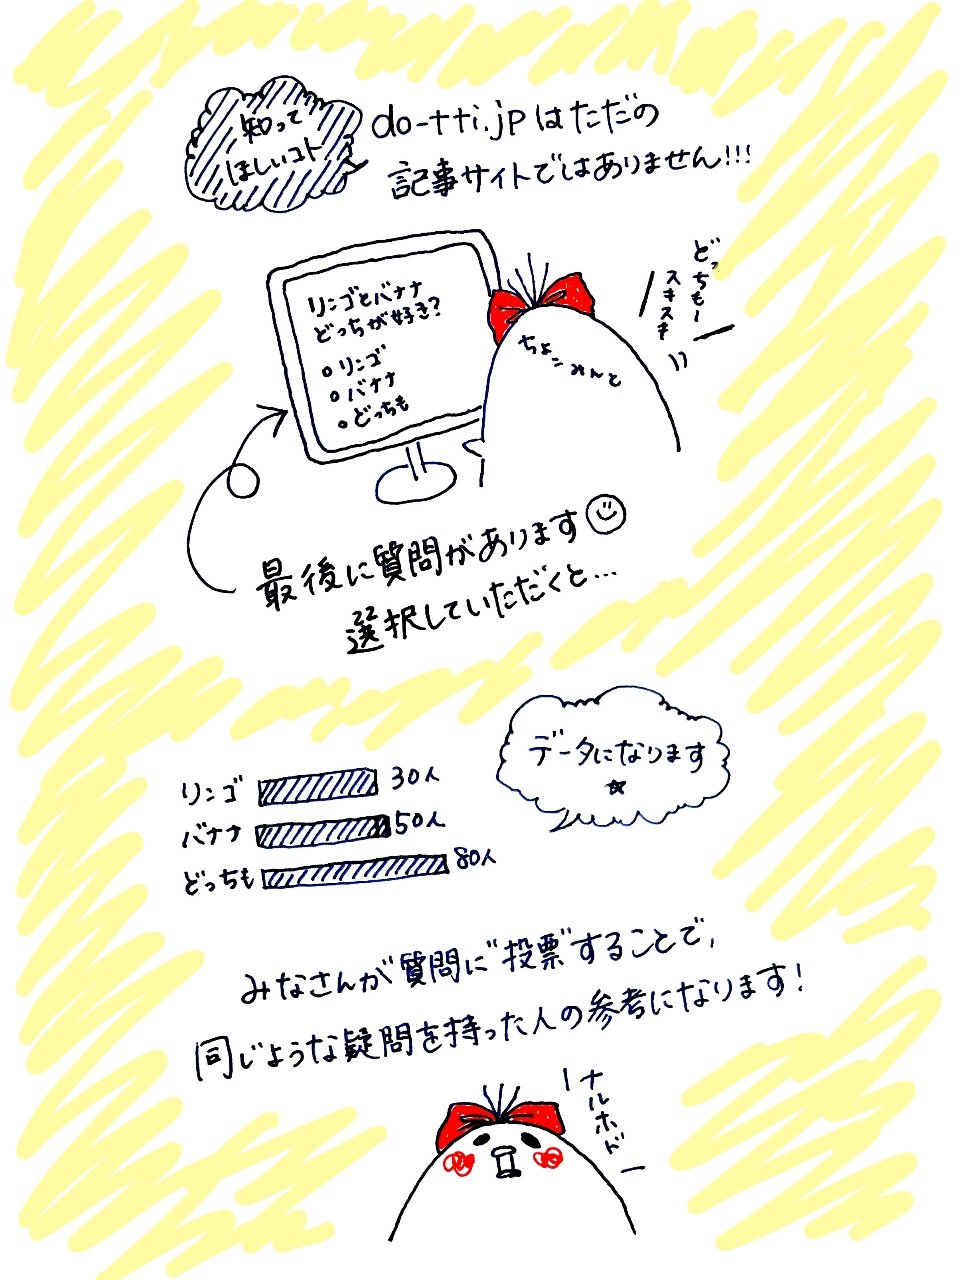 知って
ほしいコト
do-tti.jpはただの
記事サイトではありません!!!
リンゴとバナナ
どっちが好き?
リンゴ
バナナ
どっちも
ちょこみんと
どっちもー
スキスキ
最後に質問があります
選択していただくと...
データになります
☆
リンゴ 30人
バナナ 50人
どっちも 80人
みなさんが質問に"投票"することで,
同じような疑問を持った人の参考になります!
ナルホド